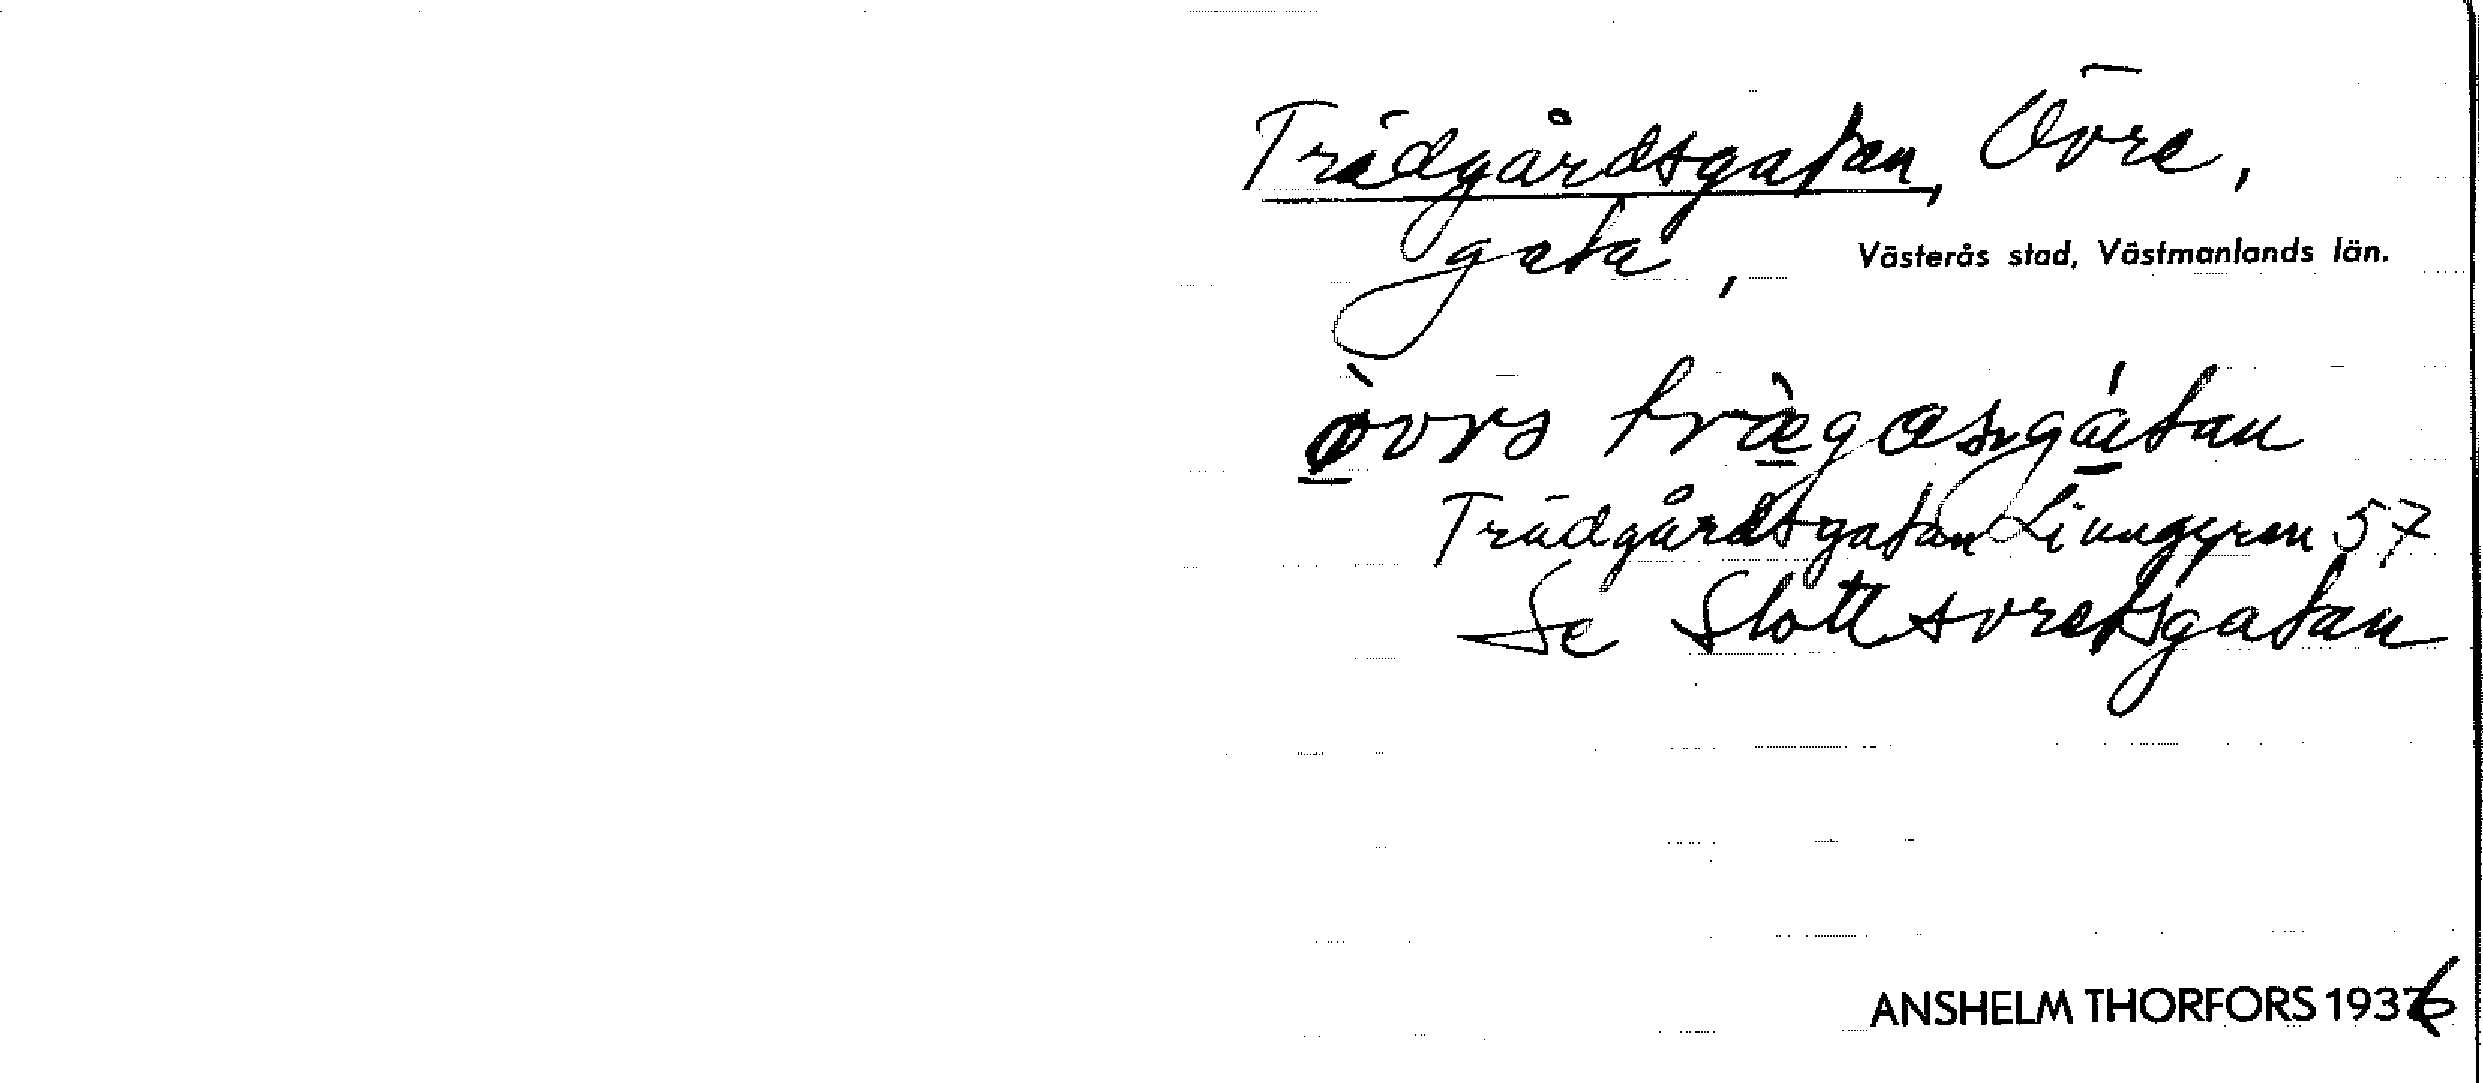 Trädgårdsgatan, Övre,
gata, Västerås stad, Västmanlands län.
ø̀vrs træ̀gasgátan
Trädgårdsgatan Ljunggren 57
Se Slottsvretsgatan
ANSHELM THORFORS 1936